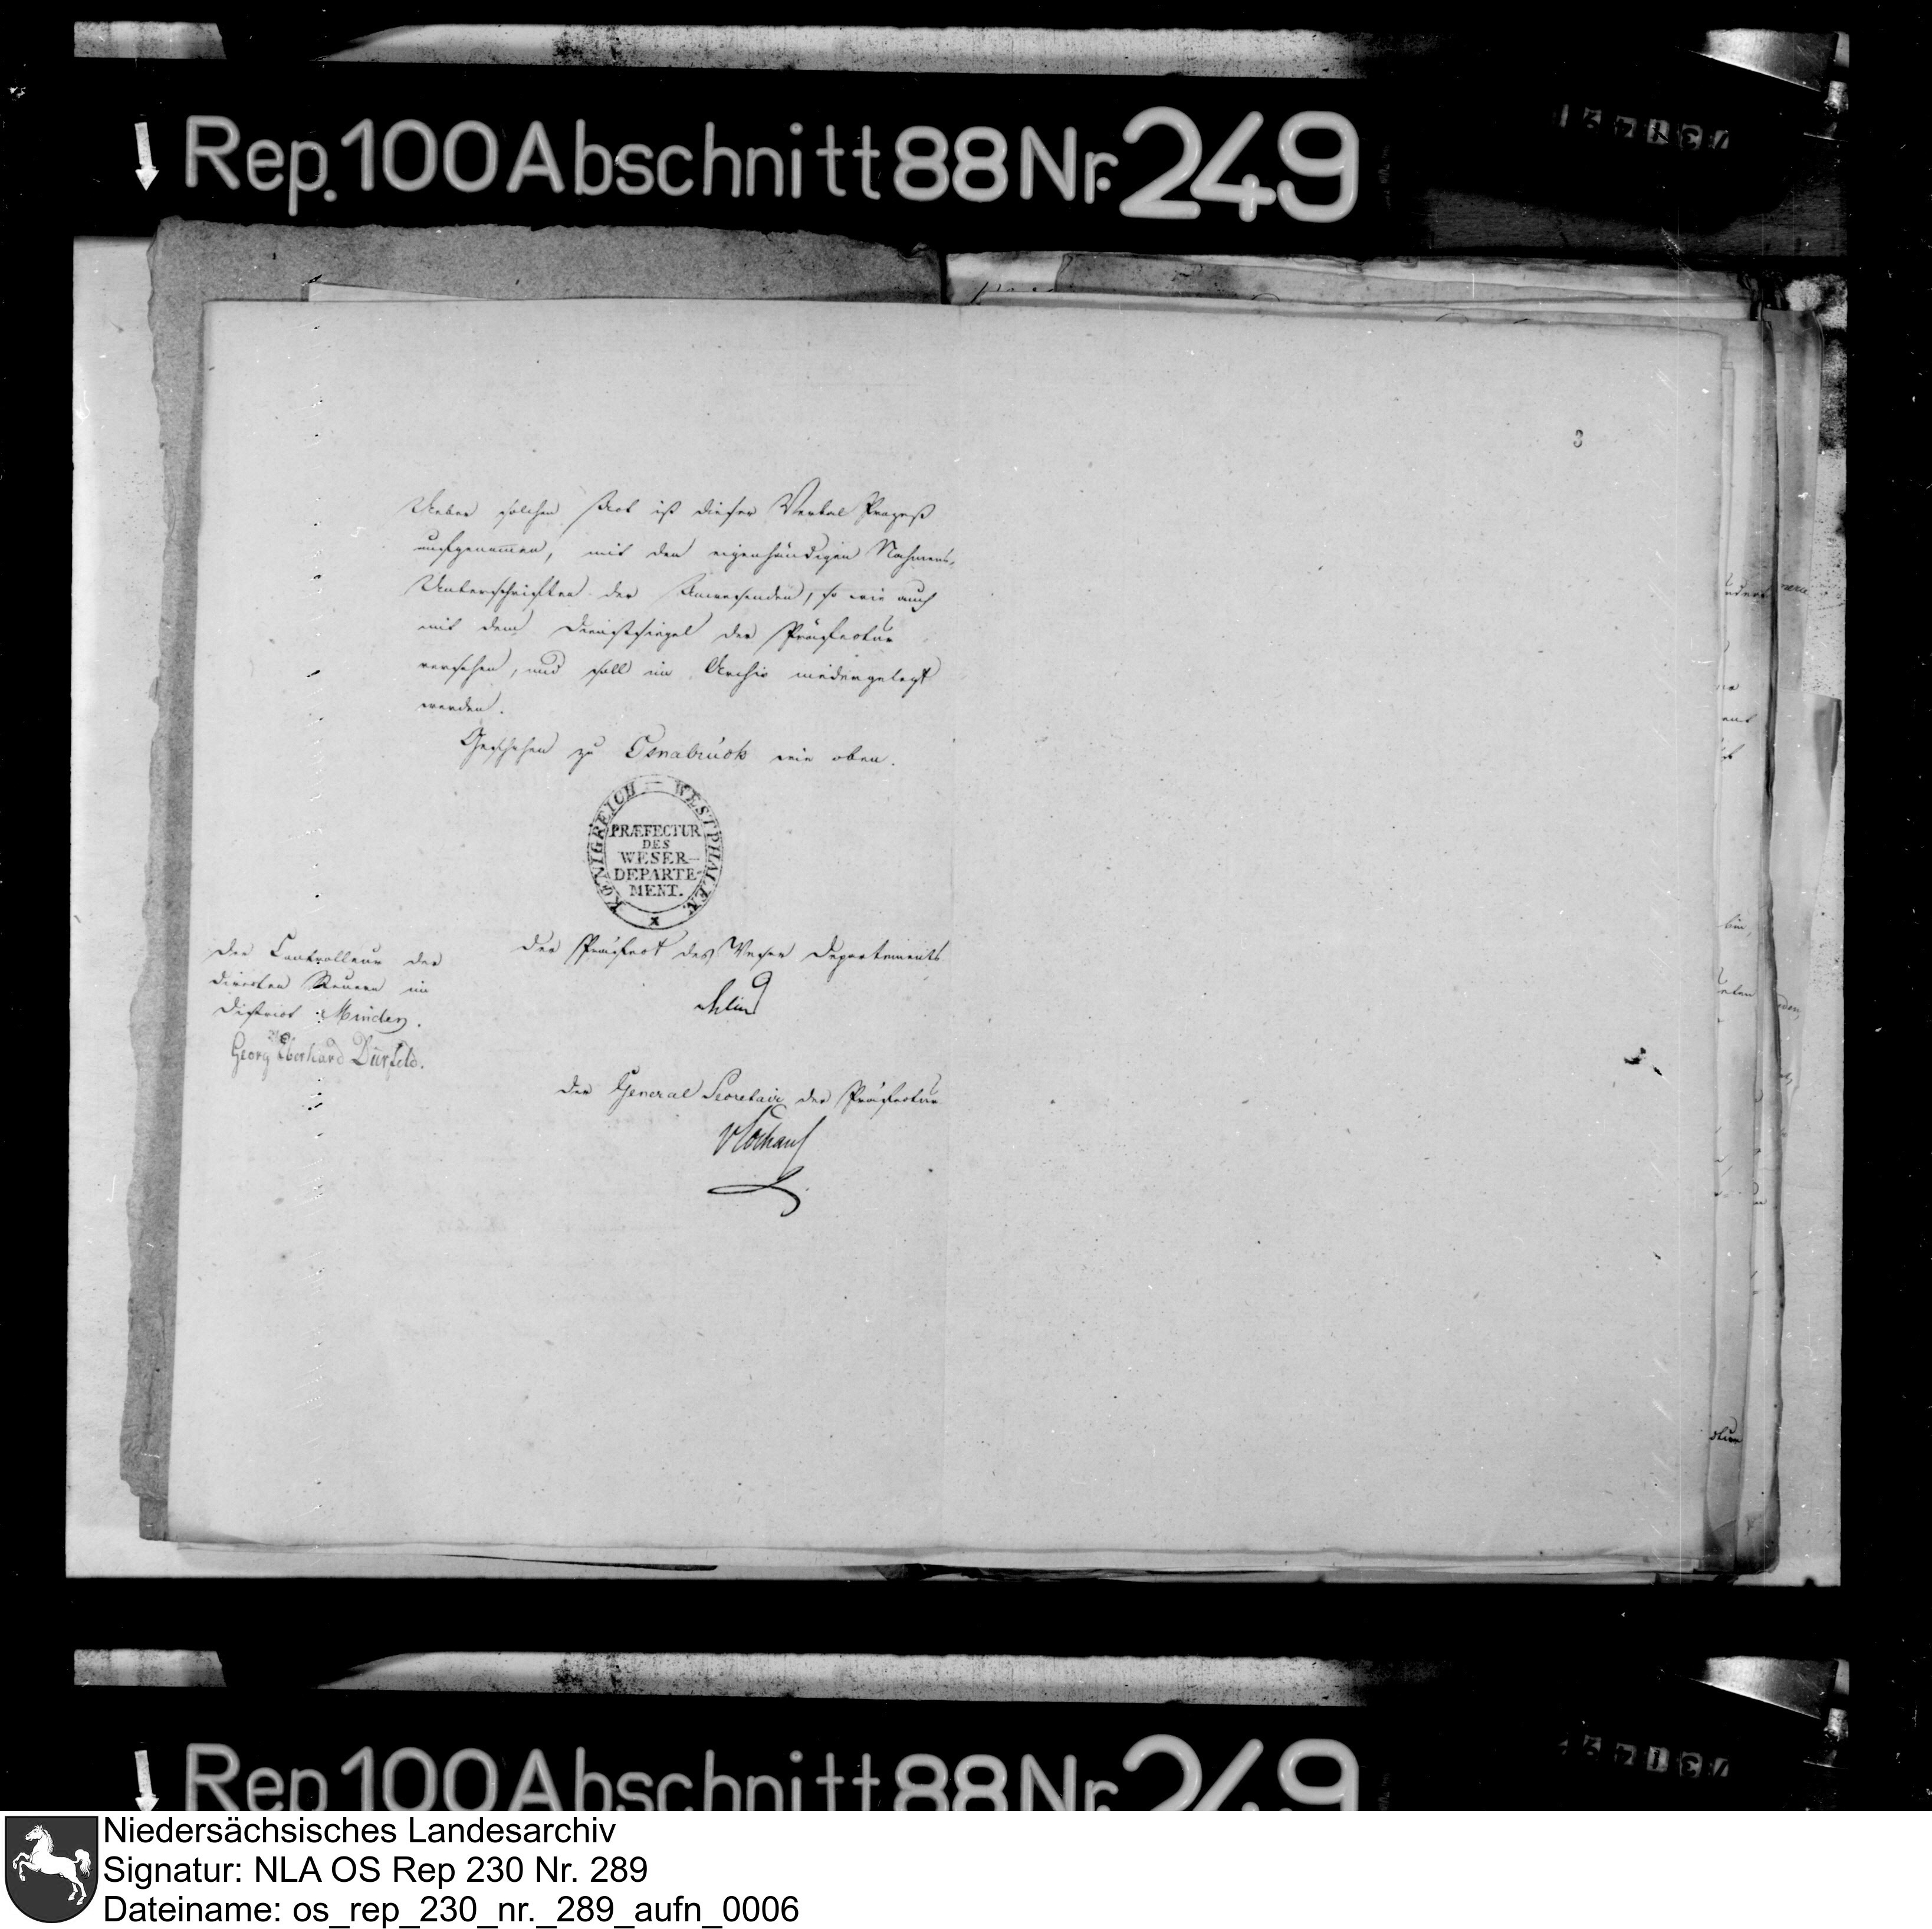 Rep. 100 Abschnitt 88 Nr. 249
3
Ueber solchen Act ist dieser Verbal Prozeß
aufgenommen, mit den eigenhändigen Nahmens-
Unterschriften der Anwesenden, so wie auch
mit dem Dienstsiegel der Präfectur
versehen, und soll im Archiv niedergelegt
werden.
Geschehen zu Osnabrück wie oben.
KŒNIGREICH — WESTPHALEN.
PRÆFECTUR
DES
WESER-
DEPARTE-
MENT.
Der Präfect des Weser Departements
Der Controlleur der
directen Steuern im
District Minden.
Georg Eberhard Dürfeld.
Der General Secretair der Präfectur
Rep. 100 Abschnitt 88 Nr. 249
Niedersächsisches Landesarchiv
Signatur: NLA OS Rep 230 Nr. 289
Dateiname: os_rep_230_nr._289_aufn_0006